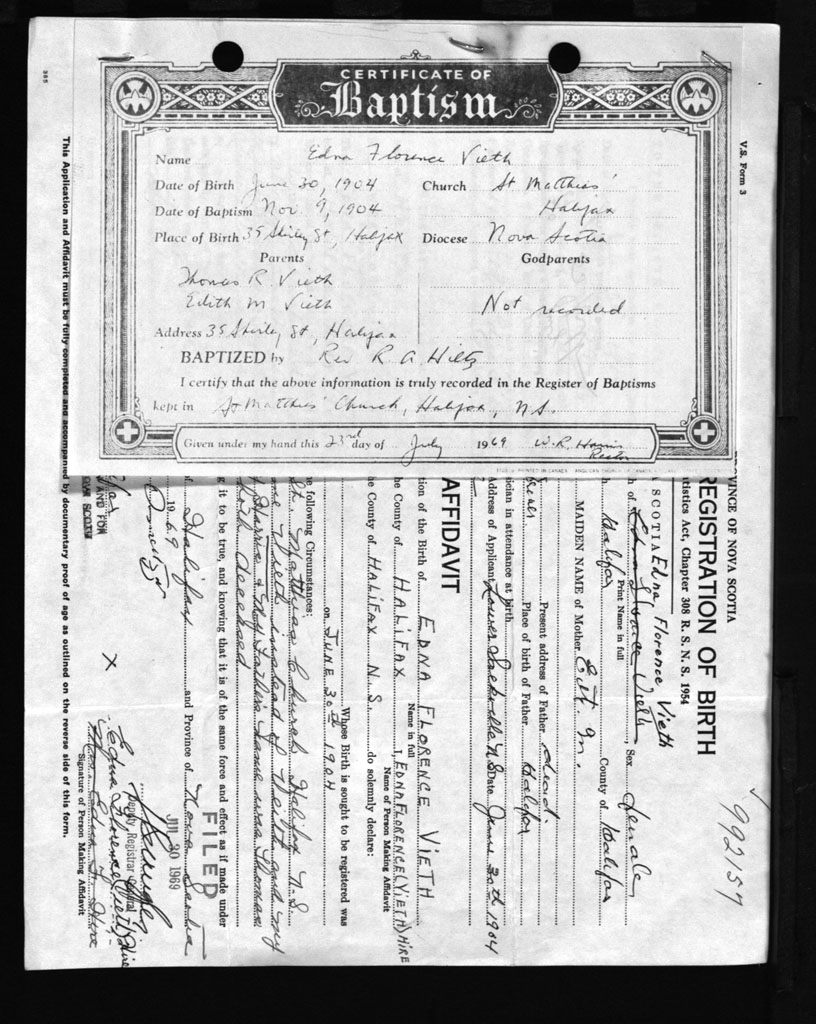 CERTIFICATE OF
Baptism
Name Edna Florence Vieth
Date of Birth June 30, 1904
Church St Matthias'
Date of Baptism Nov. 9, 1904
Halifax
Place of Birth 35 Shirley St, Halifax
Diocese Nova Scotia
Parents
Godparents
Thomas R. Vieth
Edith M Vieth
Not recorded
Address 35 Shirley St, Halifax
BAPTIZED by Rev R A Hiltz
I certify that the above information is truly recorded in the Register of Baptisms
kept in St Matthias' Church, Halifax, N.S.
Given under my hand this 23rd day of July 1969 W.R. Harris
Rector
V.S. Form 3
992157
PROVINCE OF NOVA SCOTIA
REGISTRATION OF BIRTH
Statistics Act, Chapter 308 R. S. N. S. 1954
SCOTIA Edna Florence Vieth
h of Edna Florence Vieth, Sex female
Print Name in full
Halifax County of Halifax
MAIDEN NAME of Mother Edith M.
Present address of Father dead
Place of birth of Father Halifax
ician in attendance at birth
Address of Applicant Lower Sackville N.S. Date June 30th 1904
AFFIDAVIT
tion of the Birth of EDNA FLORENCE VIETH
Name in full
he County of HALIFAX I, EDNA FLORENCE (VIETH) HIRE
Name of Person Making Affidavit
he County of HALIFAX N.S. do solemnly declare:
Whose Birth is sought to be registered was
on JUNE 30th 1904
e following Circumstances:
St. Matthias Church Halifax N.S.
Vieth instead of Veith and my
Father's name was Thomas
deceased
g it to be true, and knowing that it is of the same force and effect as if made under
of Halifax and Province of Nova Scotia
1969
FILED
JUL 30 1969
Deputy Registrar General
AND FOR
NOVA SCOTIA
X
Edna Florence (Vieth) Hire
Mrs. Edna F. Hire
Signature of Person Making Affidavit
This Application and Affidavit must be fully completed and accompanied by documentary proof of age as outlined on the reverse side of this form.